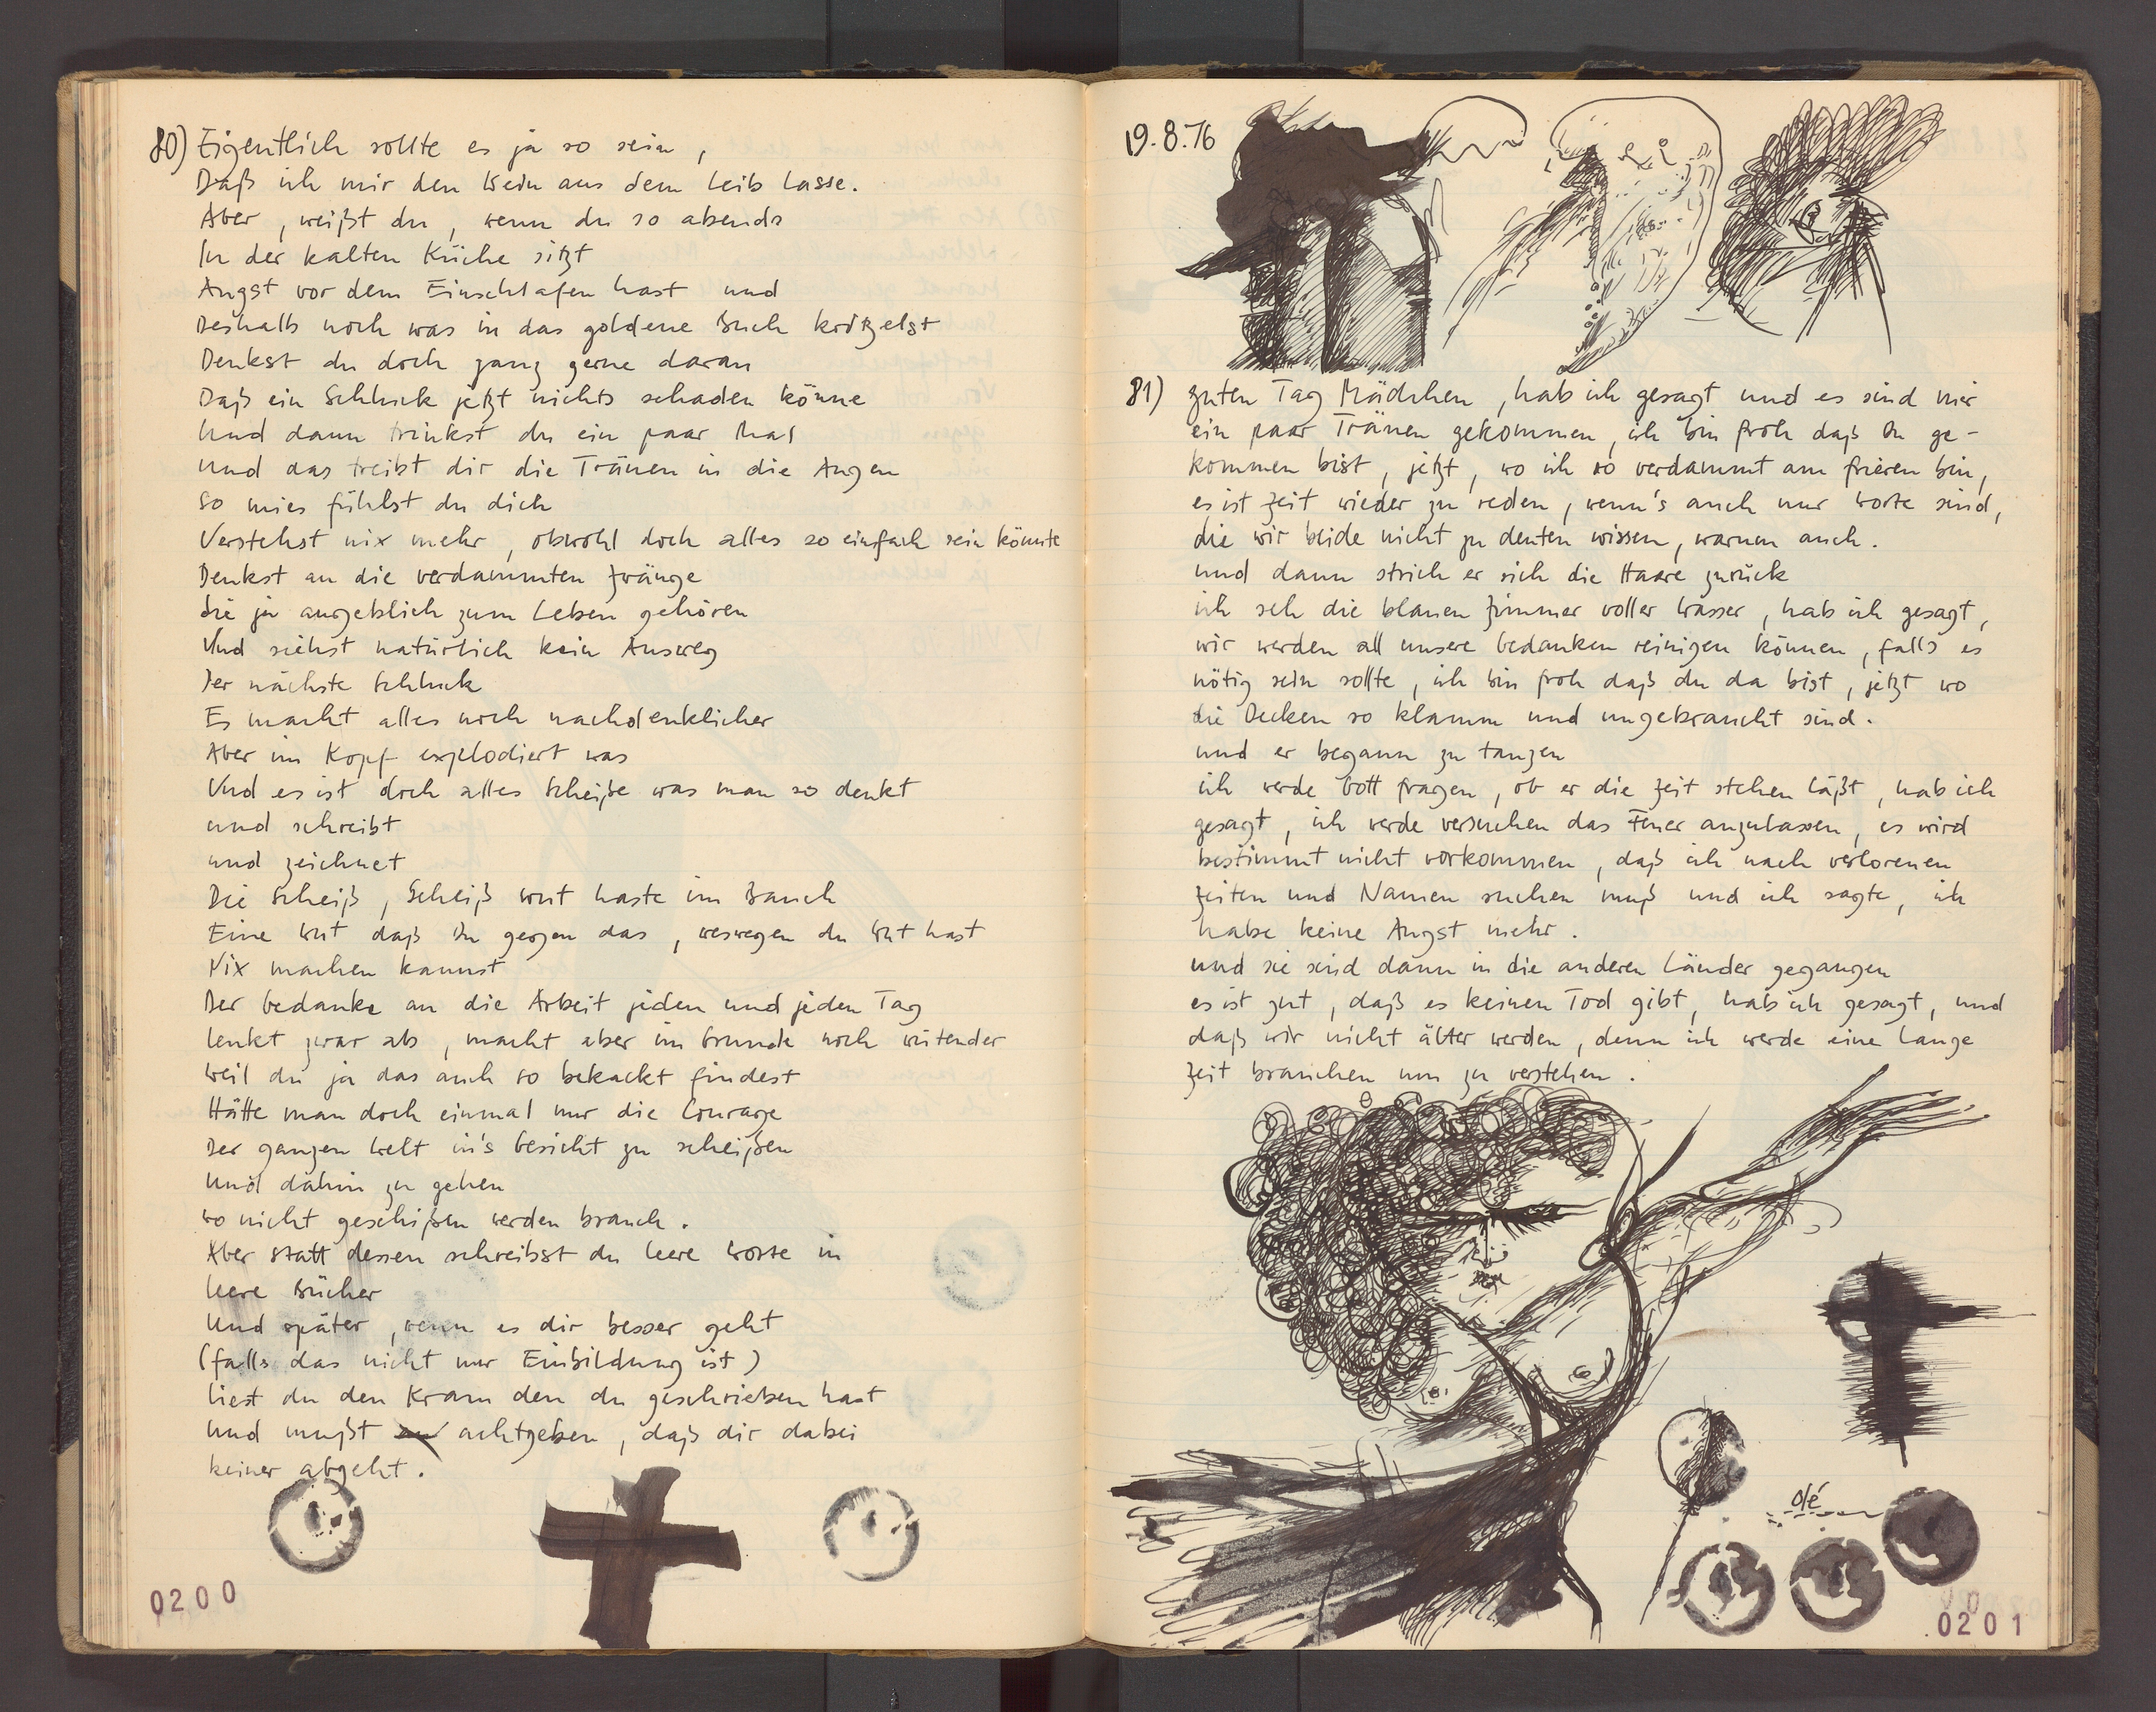 80) Eigentlich sollte es ja so sein,
Daß ich mir den Wein aus dem Leib lasse.
Aber, weißt du, wenn du so abends
In der kalten Küche sitzt
Angst vor dem Einschlafen hast und
Deshalb noch was in das goldene Buch kritzelst
Denkst du doch ganz gerne daran
Daß ein Schluck jetzt nichts schaden könne
Und dann trinkst du ein paar Mal
Und das treibt dir die Tränen in die Augen
So mies fühlst du dich
Verstehst nix mehr, obwohl doch alles so einfach sein könnte
Denkst an die verdammten Zwänge
Die ja angeblich zum Leben gehören
Und siehst natürlich kein Ausweg
Der nächste Schluck
Es macht alles noch nachdenklicher
Aber im Kopf explodiert was
Und es ist doch alles Scheiße was man so denkt
und schreibt
und zeichnet
Die Scheiß, Scheiß Wut haste im Bauch
Eine Wut daß Du gegen das, weswegen du Wut hast
Nix machen kannst
Der Gedanke an die Arbeit jeden und jeden Tag
lenkt zwar ab, macht aber im Grunde noch wütender
Weil du ja das auch so bekackt findest
Hätte man doch einmal nur die Courage
Der ganzen Welt in's Gesicht zu scheißen
Und dahin zu gehen
wo nicht geschißen werden brauch.
Aber statt dessen schreibst du leere Worte in
leere Bücher
Und später, wenn es dir besser geht
(falls das nicht nur Einbildung ist)
liest du den Kram den du geschrieben hast
Und mußt achtgeben, daß dir dabei
keiner abgeht.
0200
19.8.76
81) guten Tag Mädchen, hab ich gesagt und es sind mir
ein paar Tränen gekommen, ich bin froh daß Du ge-
kommen bist, jetzt, wo ich so verdammt am frieren bin,
es ist Zeit wieder zu reden, wenn's auch nur Worte sind,
die wir beide nicht zu deuten wissen, warum auch.
und dann strich er sich die Haare zurück
ich seh die blauen Zimmer voller Wasser, hab ich gesagt,
wir werden all unsere Gedanken reinigen können, falls es
nötig sein sollte, ich bin froh daß du da bist, jetzt wo
die Decken so klamm und ungebraucht sind.
und er begann zu tanzen
ich werde Gott fragen, ob er die Zeit stehen läßt, hab ich
gesagt, ich werde versuchen das Feuer anzulassen, es wird
bestimmt nicht vorkommen, daß ich nach verlorenen
Zeiten und Namen suchen muß und ich sagte, ich
habe keine Angst mehr.
und sie sind dann in die anderen Länder gegangen
es ist gut, daß es keinen Tod gibt, hab ich gesagt, und
daß wir nicht älter werden, denn ich werde eine lange
Zeit brauchen um zu verstehen.
olé
0201